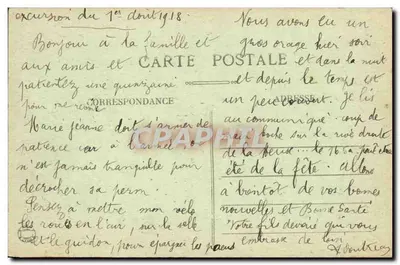 excursion du 1er Aout 1918.
Bonjour à la famille et
aux amis et
patientez une quinzaine
pour me revoir
CARTE POSTALE
CORRESPONDANCE
ADRESSE
Marie Jeanne doit s'armer de
patience car à
n'est jamais tranquille pour
décrocher sa perm.
Pensez à mettre mon vélo
les roues en l'air, sur la selle
et le guidon, pour épargner les pneus
Nous avons eu un
gros orage hier soir
et dans la nuit
et depuis le temps est
un peu couvert. Je lis
au communiqué : coup de
sur la rive droite
de la Meuse. le
été de la fête. Allons
à bientot de vos bonnes
nouvelles et Bonne Santé
Votre fils dévoué qui vous
embrasse de loin
CHAPITRE